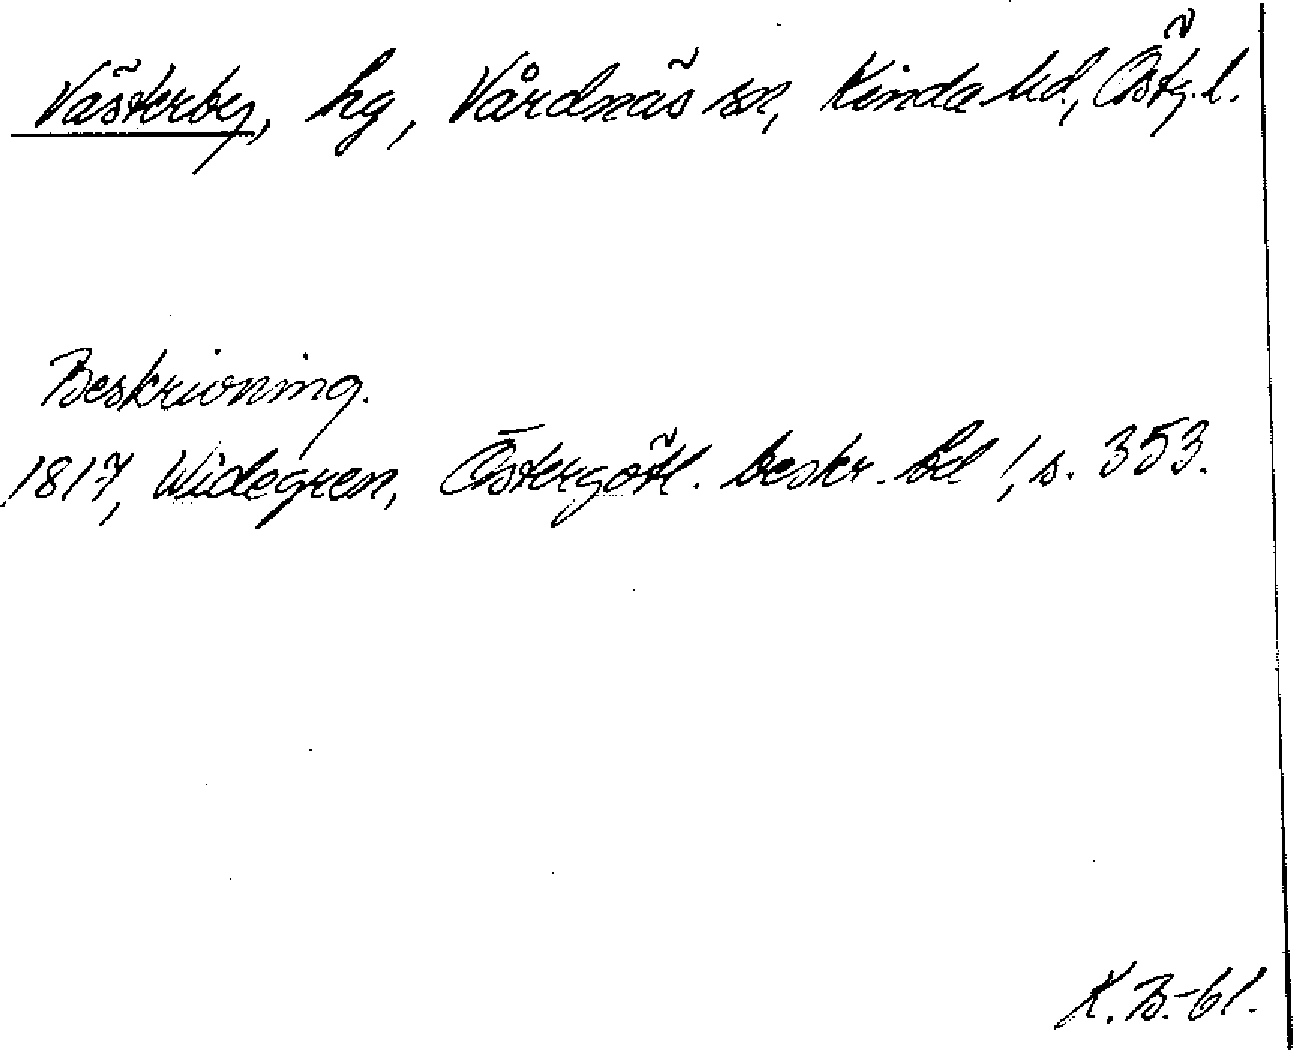 Västerby, hg, Vårdnäs sn, Kinda hd., Östg. l.
Beskrivning.
1817, Widegren, Östergötl. beskr. bd 1, s. 353.
K. B.-61.